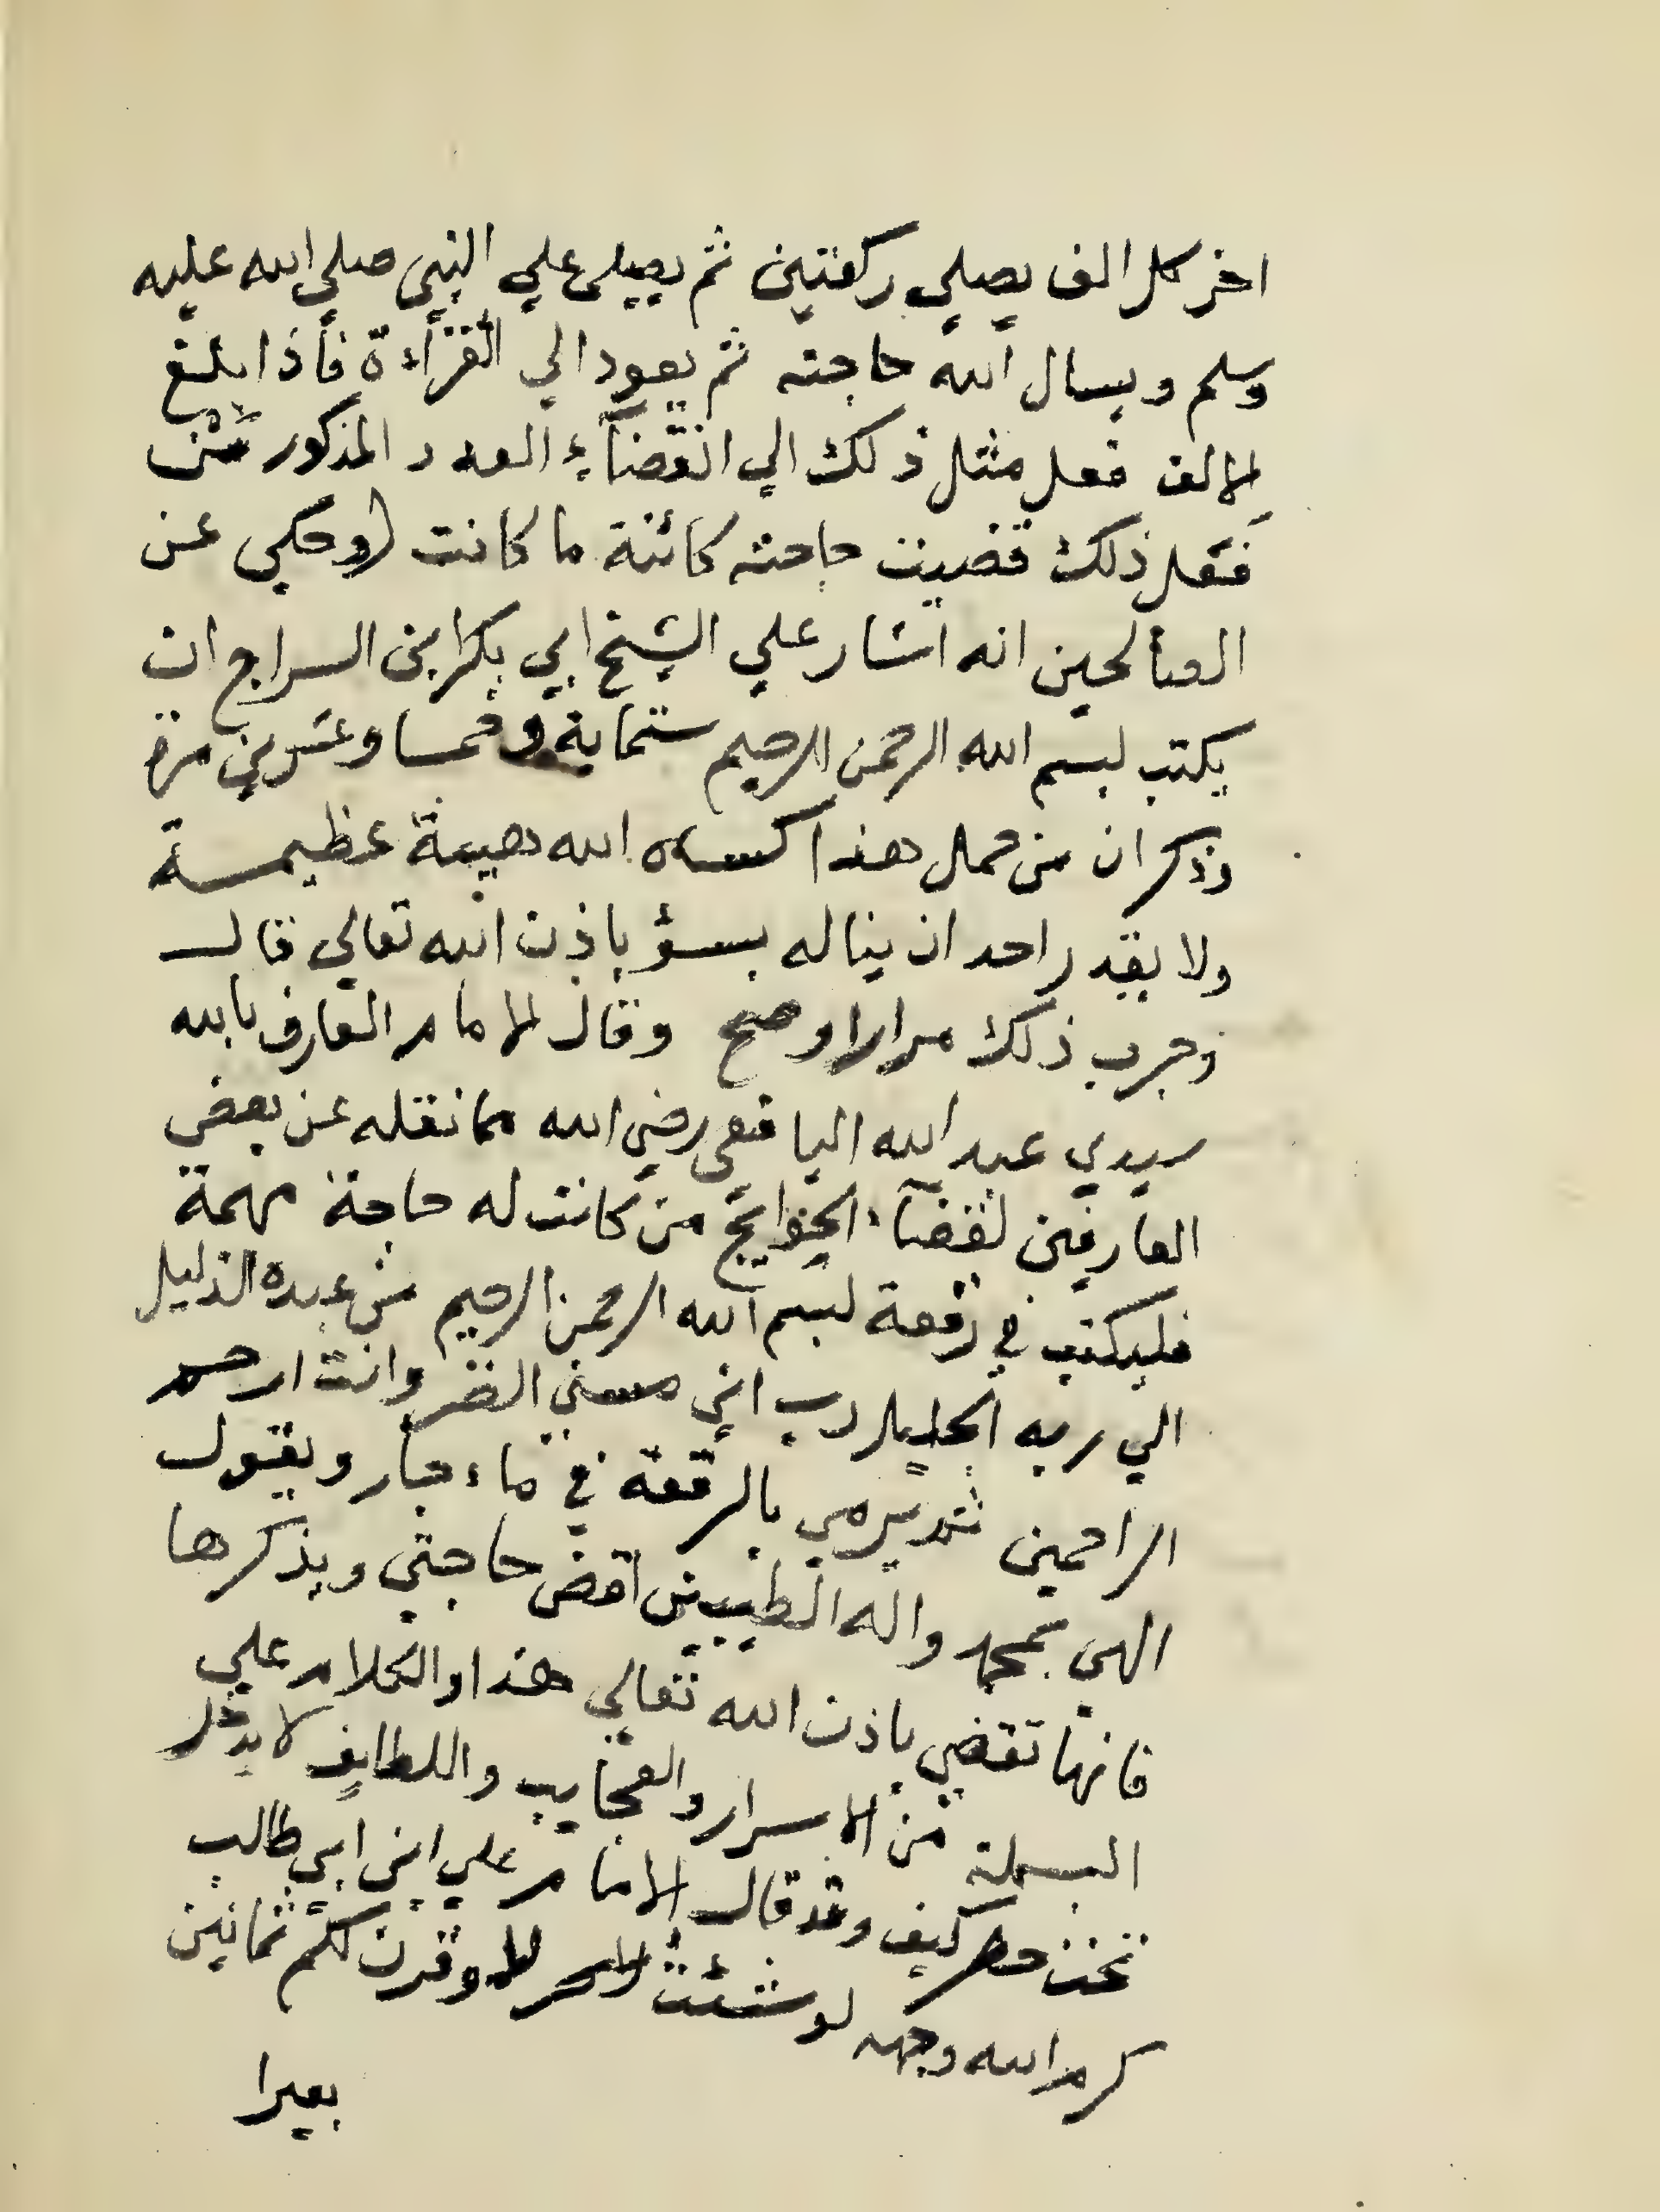 اخر كل الف يصلي ركعتين ثم يصلي علي النبي صلي الله عليه
وسلم ويسال الله حاجته ثم يعود الي القرآءة فأذا بلغ
الالف فعل مثل ذلك الي انقضآء العدد المذكور فمن
فعل ذلك قضيت حاجته كائنة ما كانت وحكي عن
الصالحين انه اشار علي الشيخ ابي بكر ابن السراج ان
يكتب بسم الله الرحمن الرحيم ستماية وخمسا وعشرين مرة
وذكر ان من حمل هذا كساه الله هيبة عظيمة
ولا يقدر احد ان يناله بسؤ باذن الله تعالي قال
وجرب ذلك مرارا وصح وقال الامام العارف بالله
سيدي عبد الله اليافعي رضي الله مما نقله عن بعض
العارفين لقضآء الحوايج من كانت له حاجة مهمة
فليكتب في رقعة بسم الله الرحمن الرحيم من عبده الذليل
الي ربه الجليل رب اني مسني الضر وانت ارحم
الراحمين ثم يرمي بالرقعة في ماء جار ويقول
الهي بمحمد واله الطيبين اقض حاجتي ويذكرها
فانها تقضي باذن الله تعالي هذا والكلام علي
البسملة من الاسرار والعجايب واللطايف لا يدخل
تحت حصر كيف وقد قال الامام علي ابن ابي طالب
كرم الله وجهه لو شئت لاوقرت لكم ثمانين
بعيرا